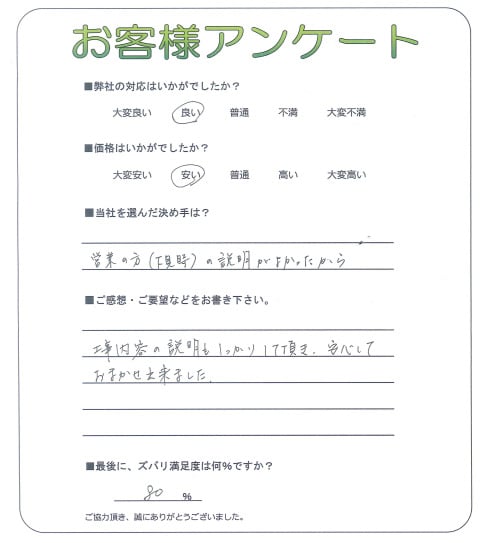 お客様アンケート
■弊社の対応はいかがでしたか？
大変良い 良い 普通 不満 大変不満
■価格はいかがでしたか？
大変安い 安い 普通 高い 大変高い
■当社を選んだ決め手は？
営業の方（下見時）の説明がよかったから
■ご感想・ご要望などをお書き下さい。
工事内容の説明もしっかりして頂き、安心して
おまかせ出来ました。
■最後に、ズバリ満足度は何%ですか？
80 %
ご協力頂き、誠にありがとうございました。